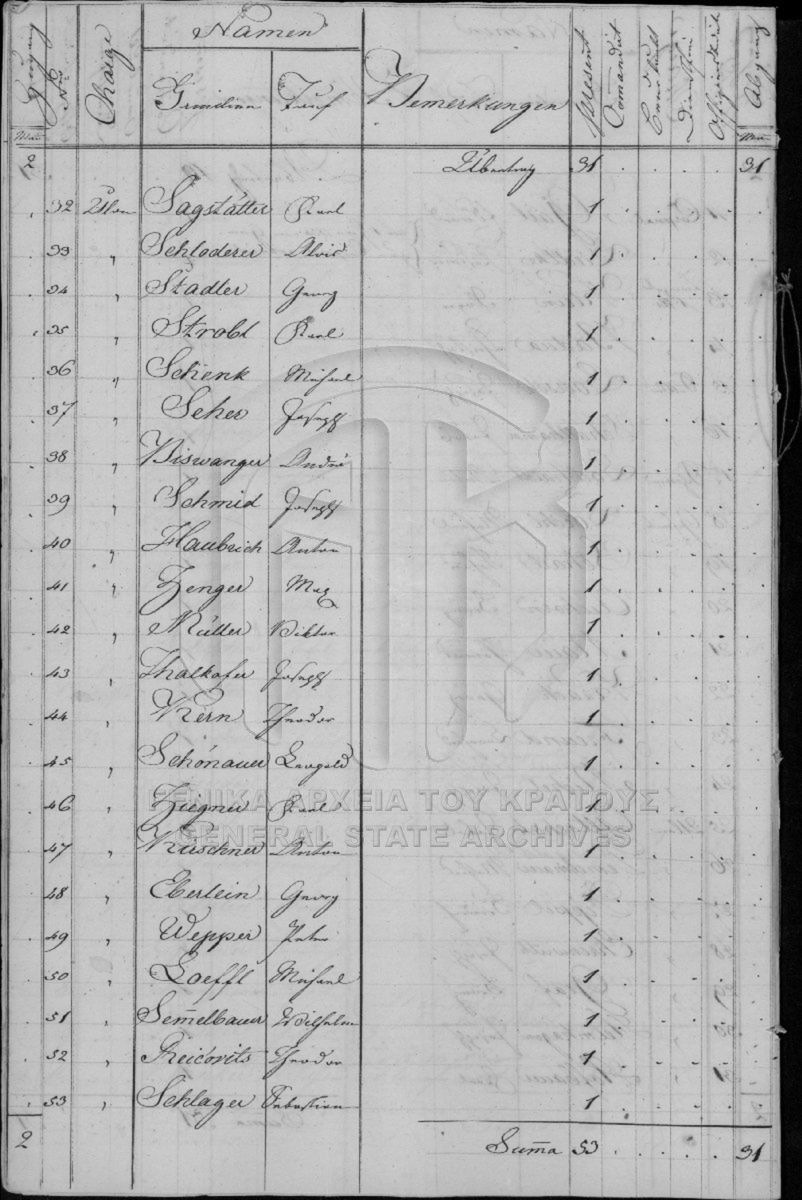 Zugang
No
Charge
Namen
Tauf
Bemerkungen
Present
Comandirt
Abgang
2 Übertrag 31 31
32 Uhlan Sagstätter Karl 1
33 " Schloderer Alois 1
34 " Stadler Georg 1
35 " Strobl Karl 1
36 " Schenk Michael 1
37 " Seher Joseph 1
38 " Biswanger André 1
39 " Schmid Joseph 1
40 " Haubrich Anton 1
41 " Zenger Max 1
42 " Müller Viktor 1
43 " Thalhofer Joseph 1
44 " Kern Theodor 1
45 " Schönauer Leopold 1
46 " Ziegner Karl 1
47 " Kürschner Anton 1
48 " Eberlein Georg 1
49 " Wepper Peter 1
50 " Loeffl Michael 1
51 " Sem̄elbauer Wilhelm 1
52 " Theodor 1
53 " Schlager Sebastian 1
2 Sum̄a 53 31
ΓΕΝΙΚΑ ΑΡΧΕΙΑ ΤΟΥ ΚΡΑΤΟΥΣ
GENERAL STATE ARCHIVES